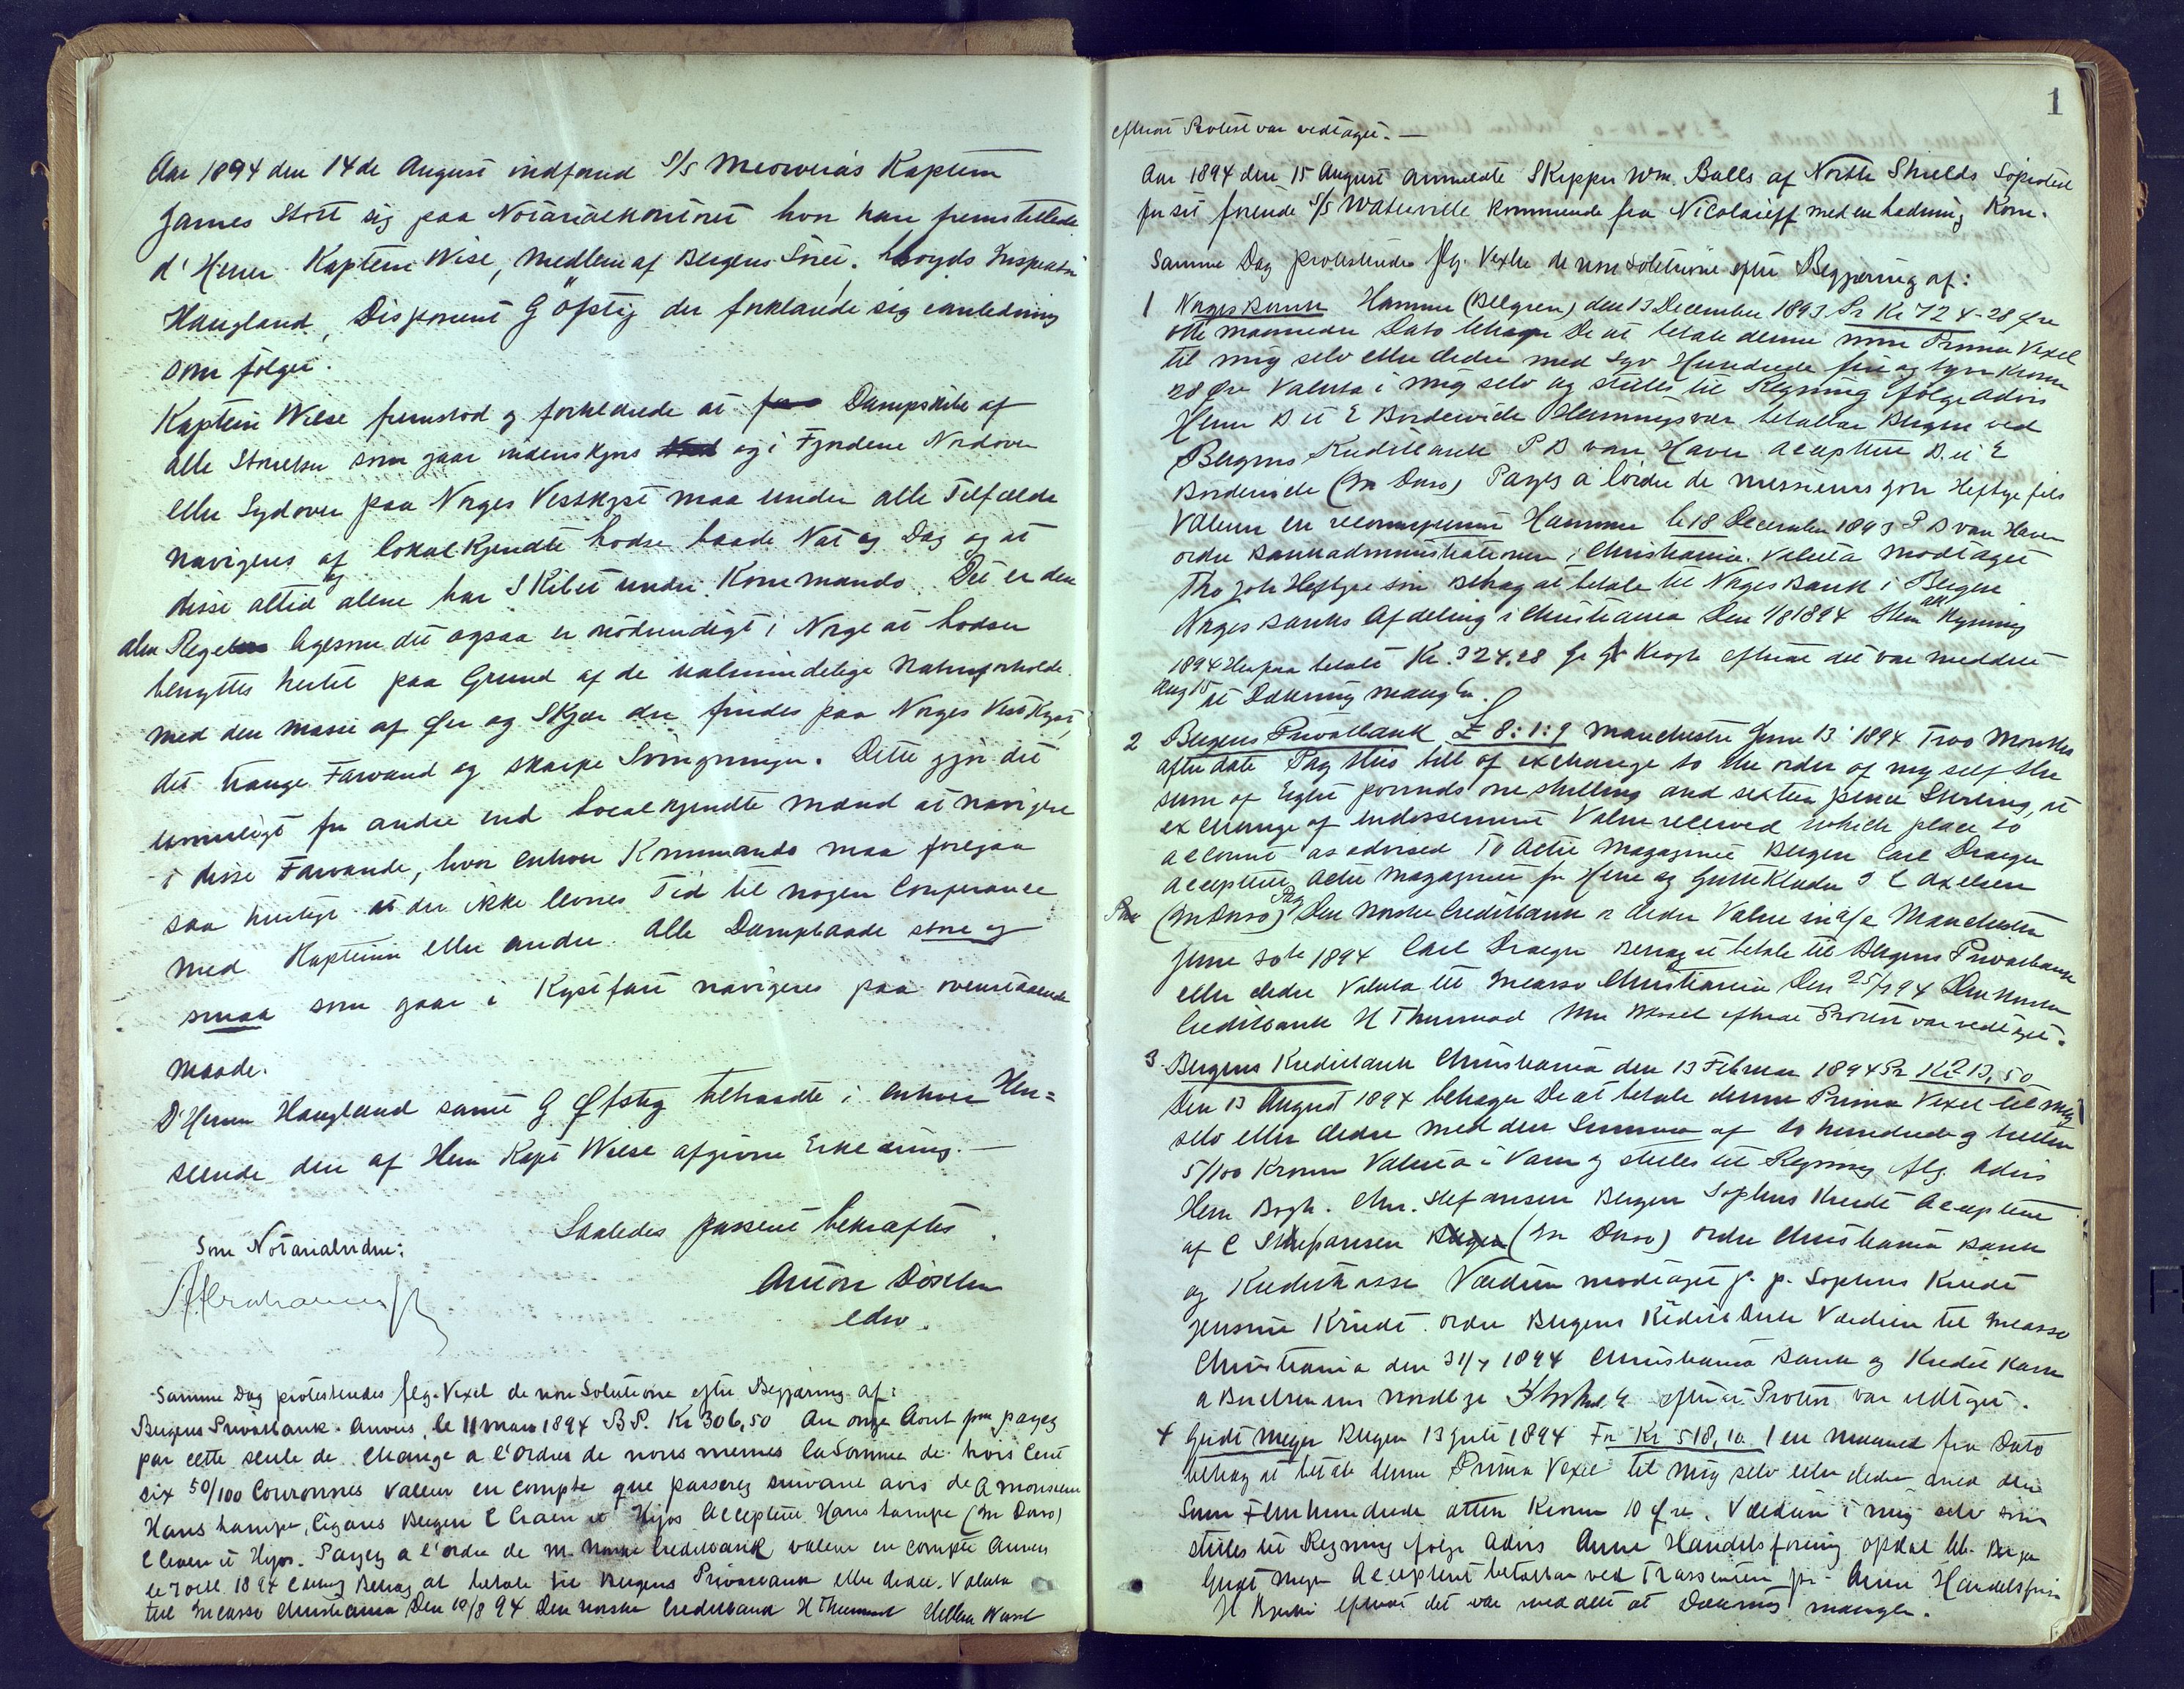 Aar 1894 den 14de August indfand S/S Meowera's Kaptein
James Stott sig paa Notarialkontoret hvor han fremstillede
d'Herrer Kaptein Wise, Medlem af Bergens Söret, Lloyds Inspektör
Haugland, Disponent G Öfstig der forklarede sig i anledning
som følger.
Kaptein Wiese fremstod og forklarede at Dampskibe af
alle Störrelser som gaar indenskjærs og i Fjordene Nordover
eller Sydover paa Norges Vestkyst maa under alle Tilfælde
navigeres af lokalkjendte Lodse baade Nat og Dag og at
disse altid og alene har Skibet under Kommando. Det er den
alm Regel ligesom det ogsaa er nödvendigt i Norge at Lodser
benyttes hertil paa Grund af de ualmindelige Naturforholde
med den Masse af Øer og Skjær der findes paa Norges Vestkyst,
det trange Farvand og skarpe Svingninger. Dette gjör det
umuligt for andre end Localkjendte Mænd at navigere
i disse Farvande, hvor enhver Kommando maa foregaa
saa hurtigt at der ikke levnes Tid til nogen Conferance
med Kapteinen eller andre. Alle Dampbaade store og
smaa som gaar i Kystfart navigeres paa ovenstaaende
Maade.
D'Herrer Haugland samt G Øfstig tiltraadte i enhver Hen=
seende den af Herr Kapt Wiese afgivne Erklæring. —
Saaledes passeret bekræftes
Som Notarialvidne:
Anton
edsv.
Samme Dag protesteredes flg. Vexel de non Solutione efter Begjæring af:
Bergens Privatbank. Anvers, le 11 Mars 1894 B.P. Kr 306,50 Au onze Aout payez
par cette seule de Change a l'ordre de nous memes la Somme de trois Cent
six 50/100 Couronnes valeur en compte que passerez suivant avis de A monsieur
Hans Lampe, Cigares Bergen Acceptert Hans Lampe (In Dorso)
Payez a l'ordre de Norske Creditbank valeur en compte Anvers
1894 Behag at betale til Bergens Privatbank eller Ordre. Valuta
til Incasso Christiania Den 10/8 94 Den norske Creditbank H Thurmand
1
efterat Protest var vedtaget. —
Aar 1894 den 15 August anmeldte Skipper Wm. Balls af North Shields Söprotest
for sit förende S/S Waterville kommende fra Nicolaieff med en Ladning Korn.
Samme Dag protesteredes flg. Vexler de non Solutione efter Begjæring af:
1 Norges Bank Hammer (Bergen) den 13 December 1893 Pr Kr 724-28 Øre
otte maaneder Dato behager De at betale denne min Prima Vexel
til mig selv eller Ordre med Syv Hundrede fire og tyve Kroner
28 Øre Valuta i mig selv og stilles til Regning ifölge Advis
Herrer D et E Bordewick Henningsvær betalbar Bergen ved
Bergens Kreditbank P D van Haven Accepteret D. et E
Bordewick (In Dorso) Payez a l'ordre de messieurs Joh Heftye fils
Valeur en Hammer le 18 December 1893 P D van Haven
ordre Bankadministrationen i Christiania. Valuta modtaget
Tho Joh Heftye & sön Behag at betale til Norges Bank i Bergen
Norges Banks Afdeling i Christiania Den 1/8 1894
1894 Herpaa betalt Kr. 324,28 Krogh efterat det var meddelt
Aug 15 at Dækning mangler.
2 Bergens Privatbank £ 8:1:9 Manchester June 13 1894 Two Months
after date Pay this bill of exchange to the order of myself the
sum of Eight pounds one shilling and pence Sterling, at
exchange of endossement Value received which place to
account as advised To Actie Magazinet Bergen Carl Draeger
Accepteret Actie Magazinet for Herre og Gutteklæder
(In Dorso) Pay Den Norske Creditbank or Order Value in a/c Manchester
June 1894 Carl Draeger Behag at betale til Bergens Privatbank
eller Ordre Valuta til Incasso Christiania Den 25/7 94 Den norske
Creditbank H Thurmand efterat Protest var vedtaget.
3 Bergens Kreditbank Christiania den 13 Februar 1894 Pr Kr 213,50
Den 13 August 1894 behager De at betale denne Prima Vexel til mig
selv eller Ordre med den Summa af to hundrede og tretten
5/100 Kroner Valuta i Varer og stilles til Regning flg. Advis
Herr Bogh. Chr. Stefansen Bergen Sophus Kriedt Accepteret
af C Stephansen (In Dorso) Ordre Christiania Bank
og Kreditkasse Værdien modtaget p. p. Sophus Kriedt
Jensine Kriedt. Ordre Bergens Kreditbank Værdien til Incasso
Christiania den 31/7 1894 Christiania Bank og Kredit Kasse
efterat Protest var vedtaget.
4 Gerdt Meyer Bergen 13 Juli 1894 For Kr 518,10 1 en Maaned fra Dato
behag at betale denne Prima Vexel til mig selv eller Ordre med den
Sum Femhundrede atten Kroner 10 Øre. Værdien i mig selv som
stilles til Regning følge Advis Arne Handelsforening Bergen
Gerdt Meyer Accepteret betalbar ved Trassenten pr Arne Handelsforen
efterat det var meddelt at Dækning mangler.